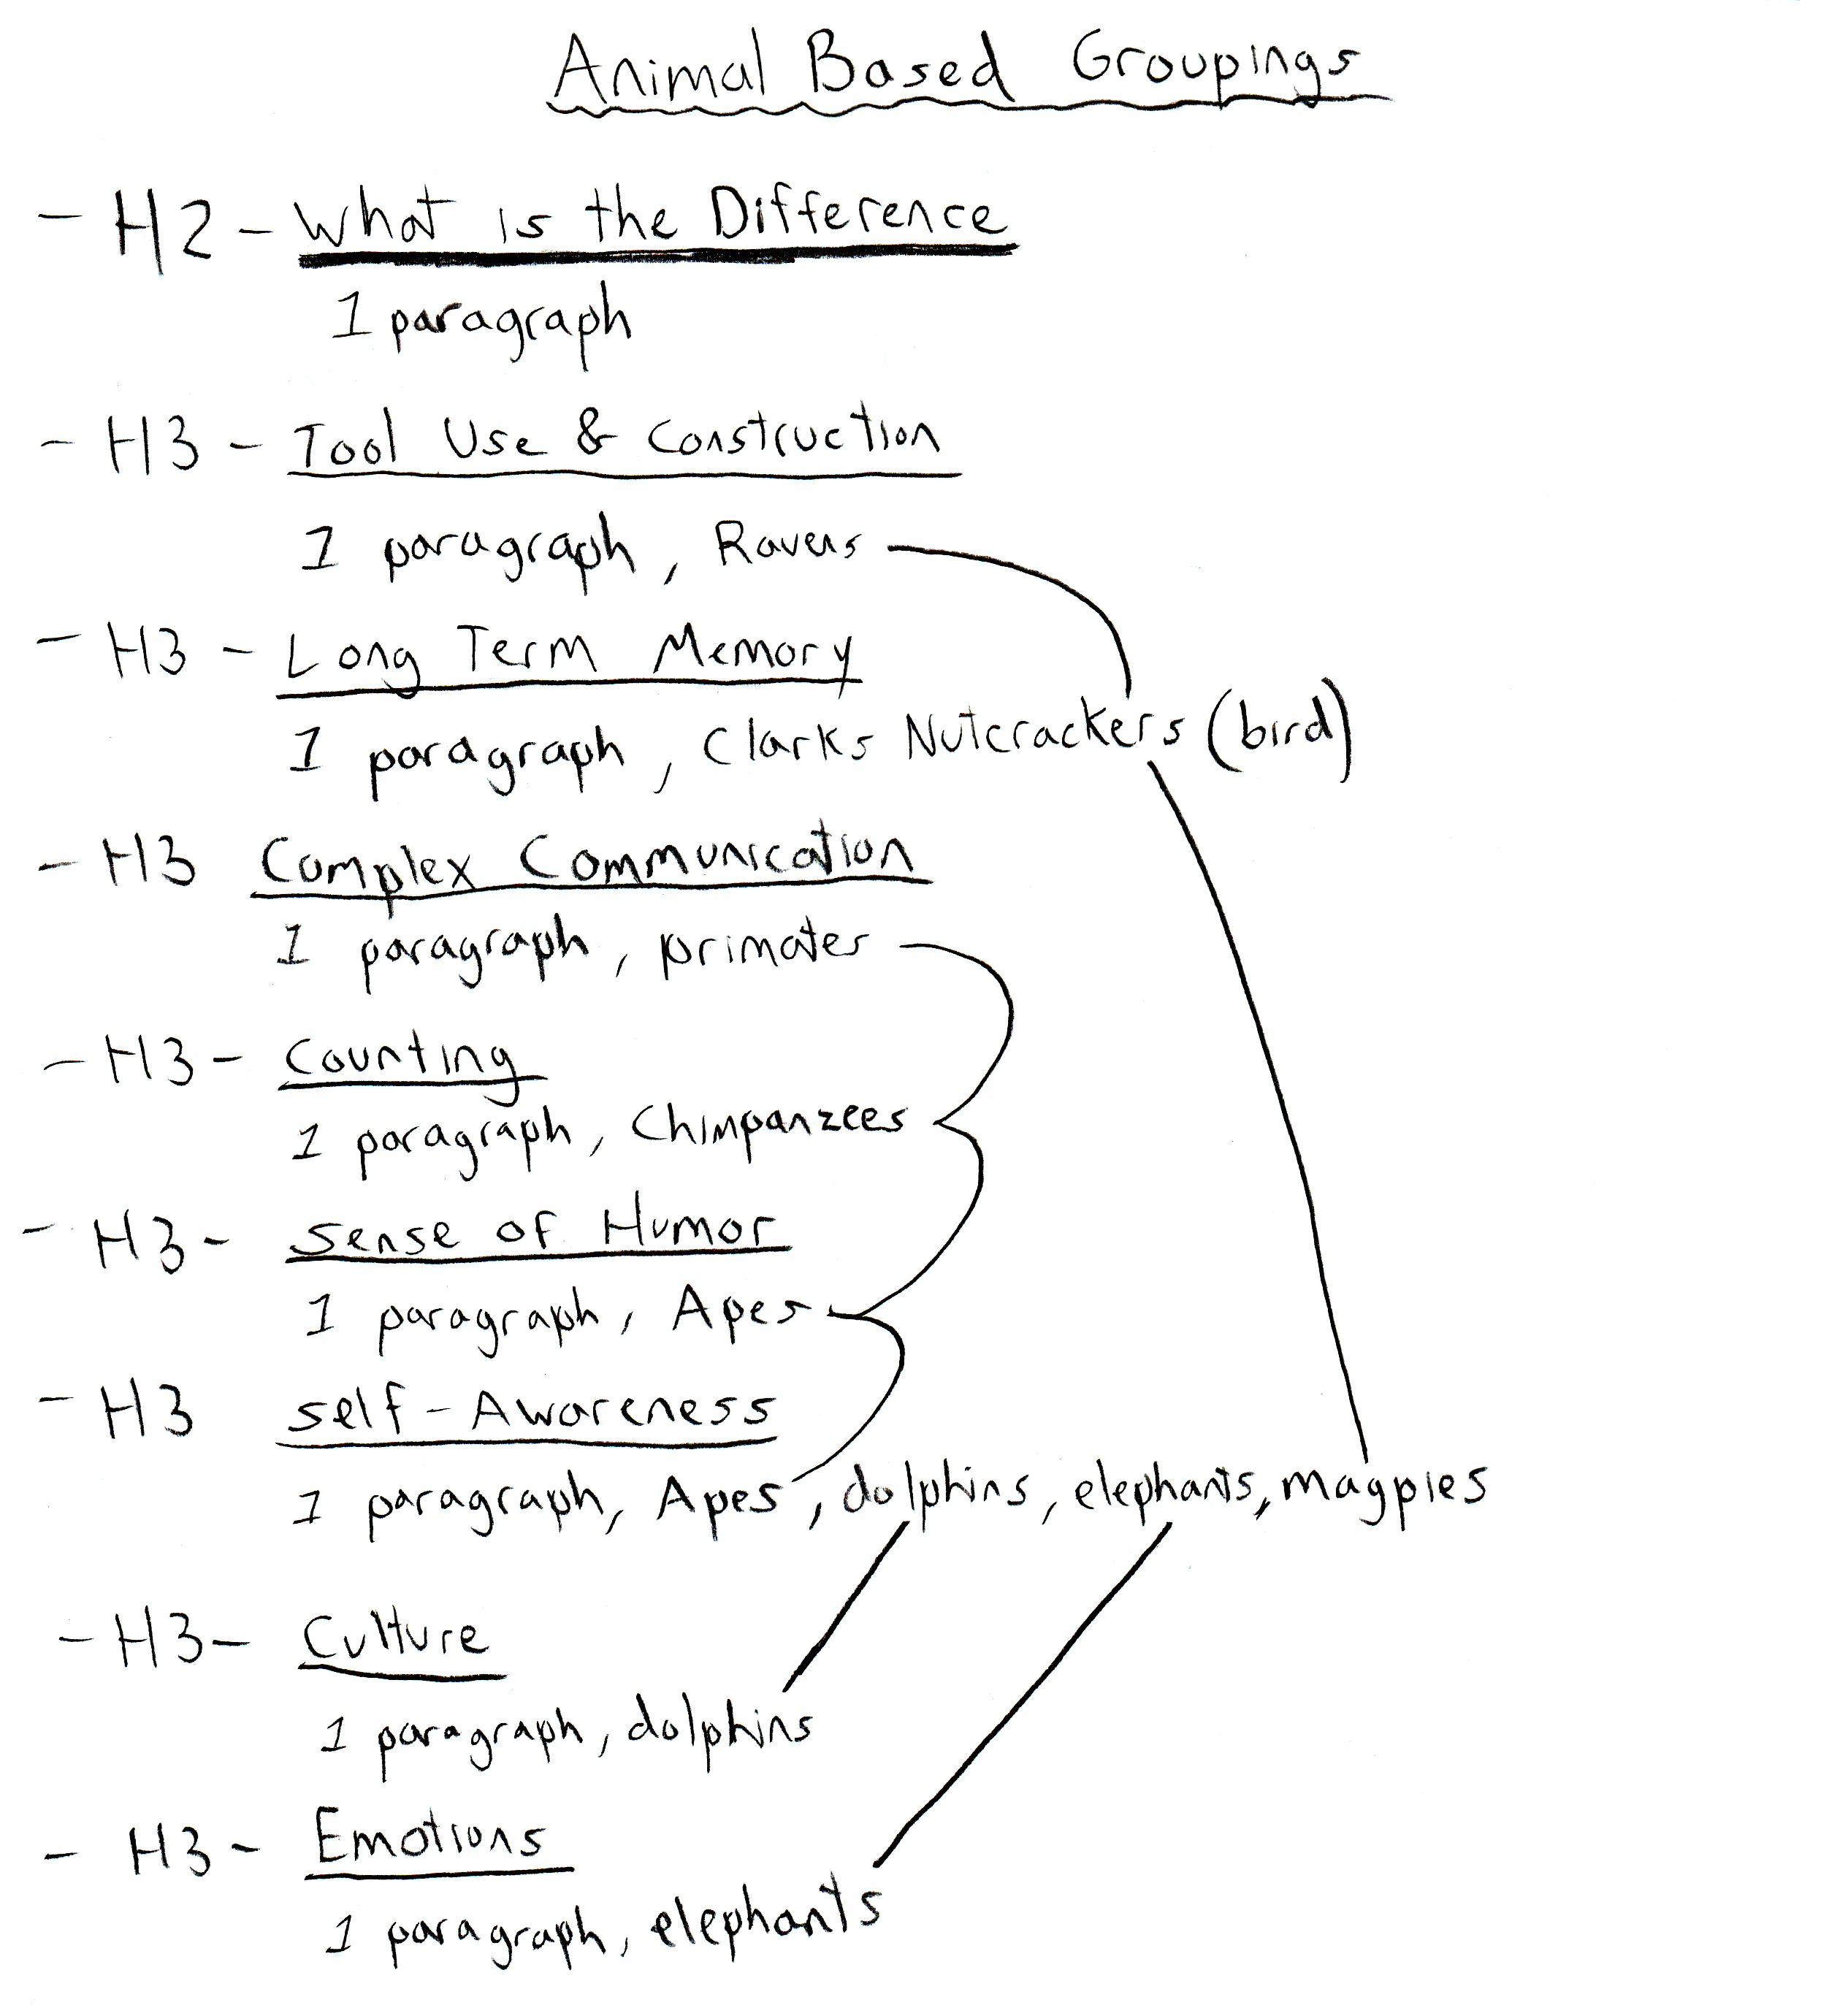 Animal Based Groupings
- H2 - What is the Difference
1 paragraph
- H3 - Tool Use & Construction
1 paragraph, Ravens
- H3 - Long Term Memory
1 paragraph, Clarks Nutcrackers (bird)
- H3 Complex Communication
1 paragraph, primates
- H3 - Counting
1 paragraph, Chimpanzees
- H3 - Sense of Humor
1 paragraph, Apes
- H3 Self-Awareness
1 paragraph, Apes, dolphins, elephants, magpies
- H3 - Culture
1 paragraph, dolphins
- H3 - Emotions
1 paragraph, elephants